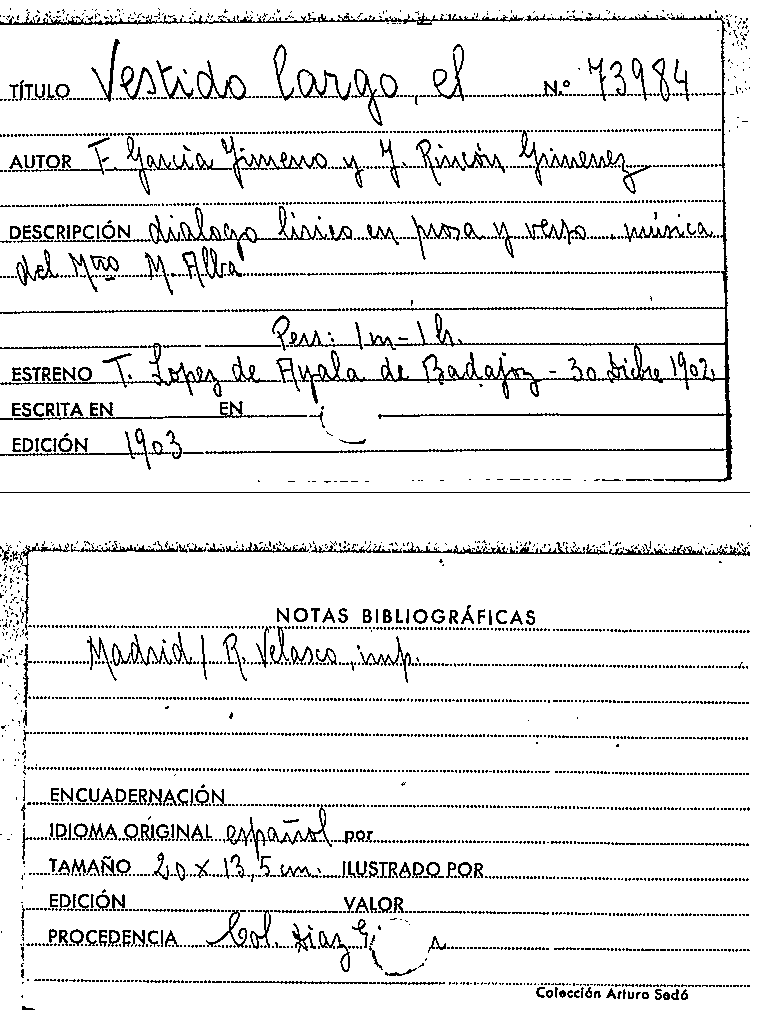 TÍTULO Vestido largo, el Nº 73984
AUTOR F. García Jimeno y J. Rincón Gimenez
DESCRIPCIÓN dialogo lírico en prosa y verso música
del Mtro M. Alba
Pers: 1m-1h.
ESTRENO T. Lopez de Ayala de Badajoz - 30 Dicbre 1902
ESCRITA EN EN
EDICIÓN 1903
NOTAS BIBLIOGRÁFICAS
Madrid / R. Velasco, imp.
ENCUADERNACIÓN
IDIOMA ORIGINAL español por
TAMAÑO 20 x 13,5 cm. ILUSTRADO POR
EDICIÓN VALOR
PROCEDENCIA Col. Diaz
Colección Arturo Sedó